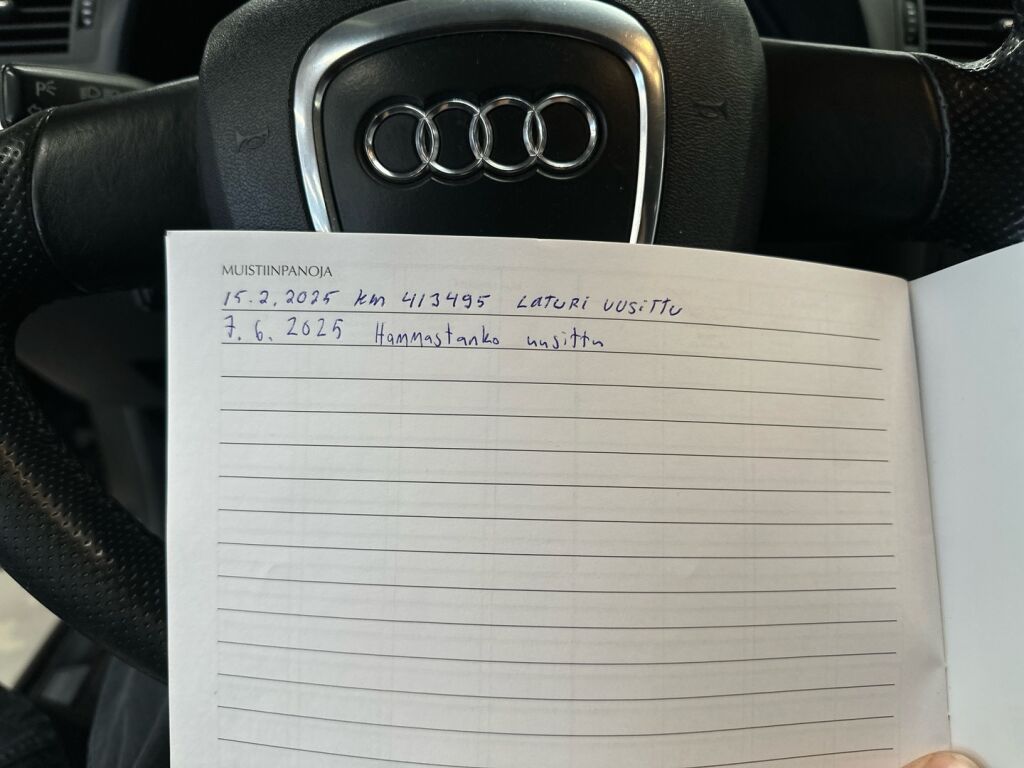 MUISTIINPANOJA
15.2.2025 km 413495 LATURI UUSITTU
7.6.2025 Hammastanko uusittu